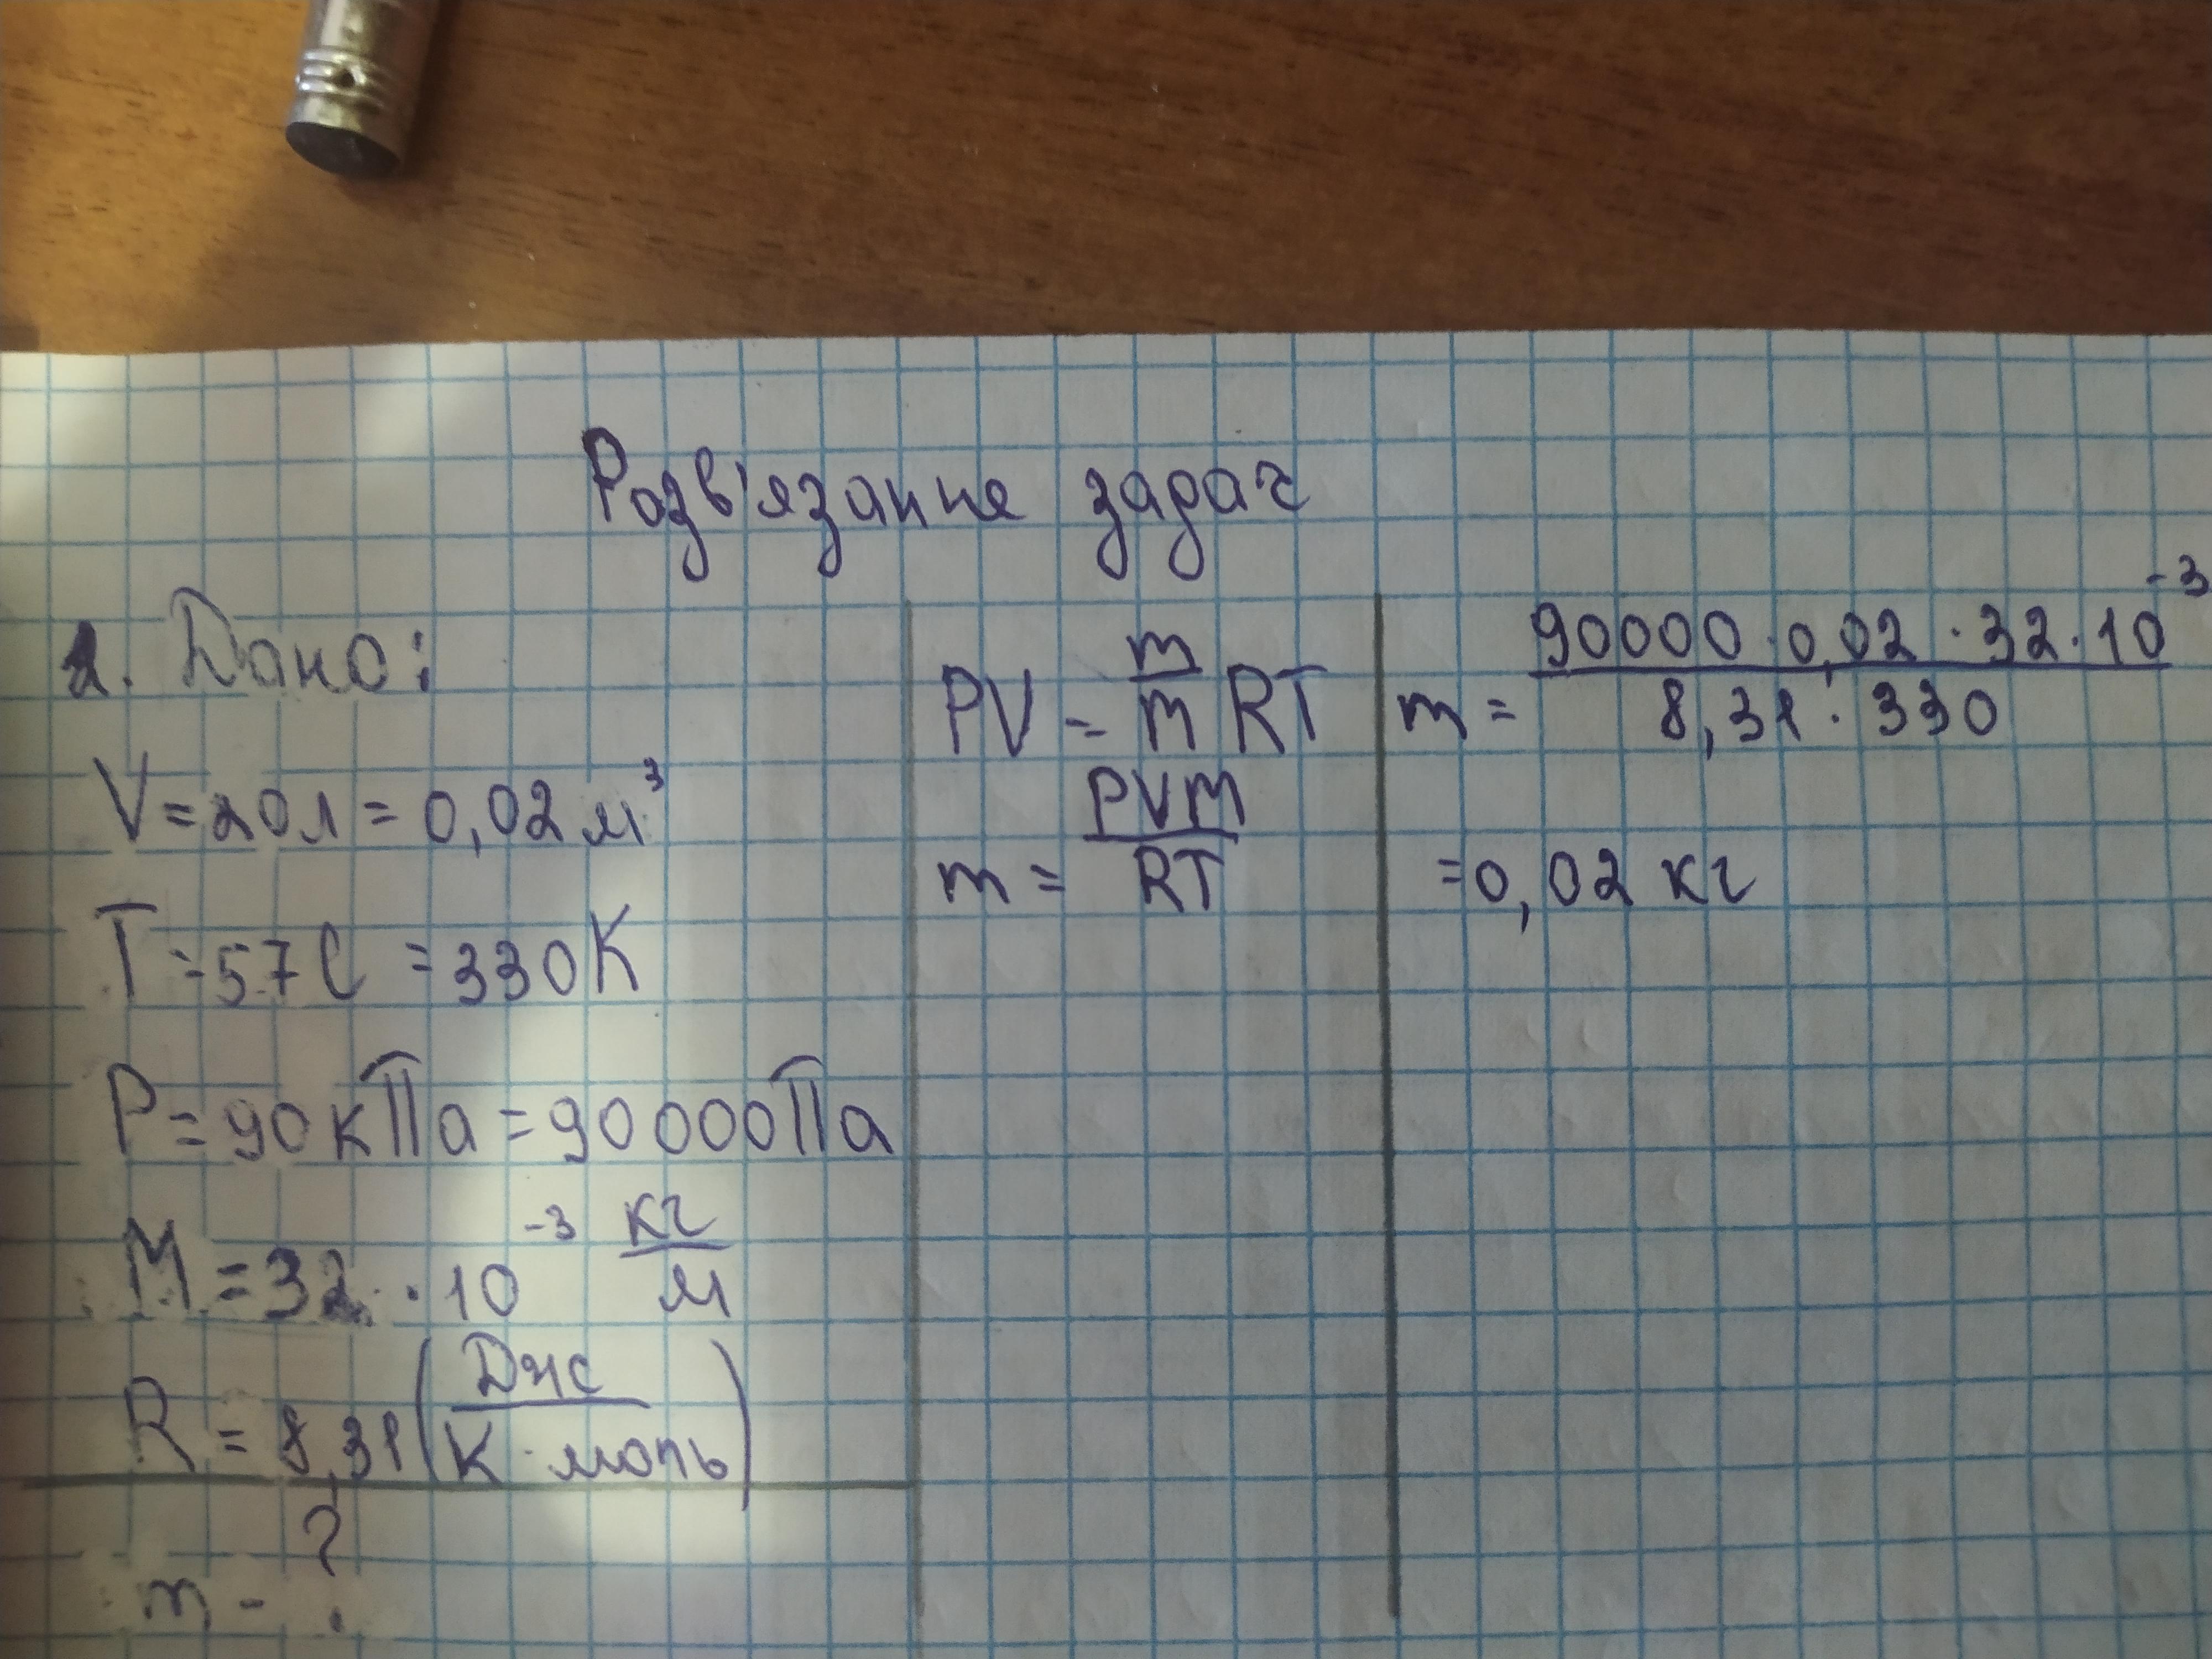 Розв'язання задач
1. Дано:
V = 20л = 0,02 м³
T = 57 C = 330 K
P = 90 кПа = 90000 Па
M = 32 · 10⁻³ кг/м
R = 8,31 (Дж/К · моль)
m - ?
PV = m/m RT
m = PVM/RT
m = 90000 · 0,02 · 32 · 10⁻³/8,31 · 330
= 0,02 кг